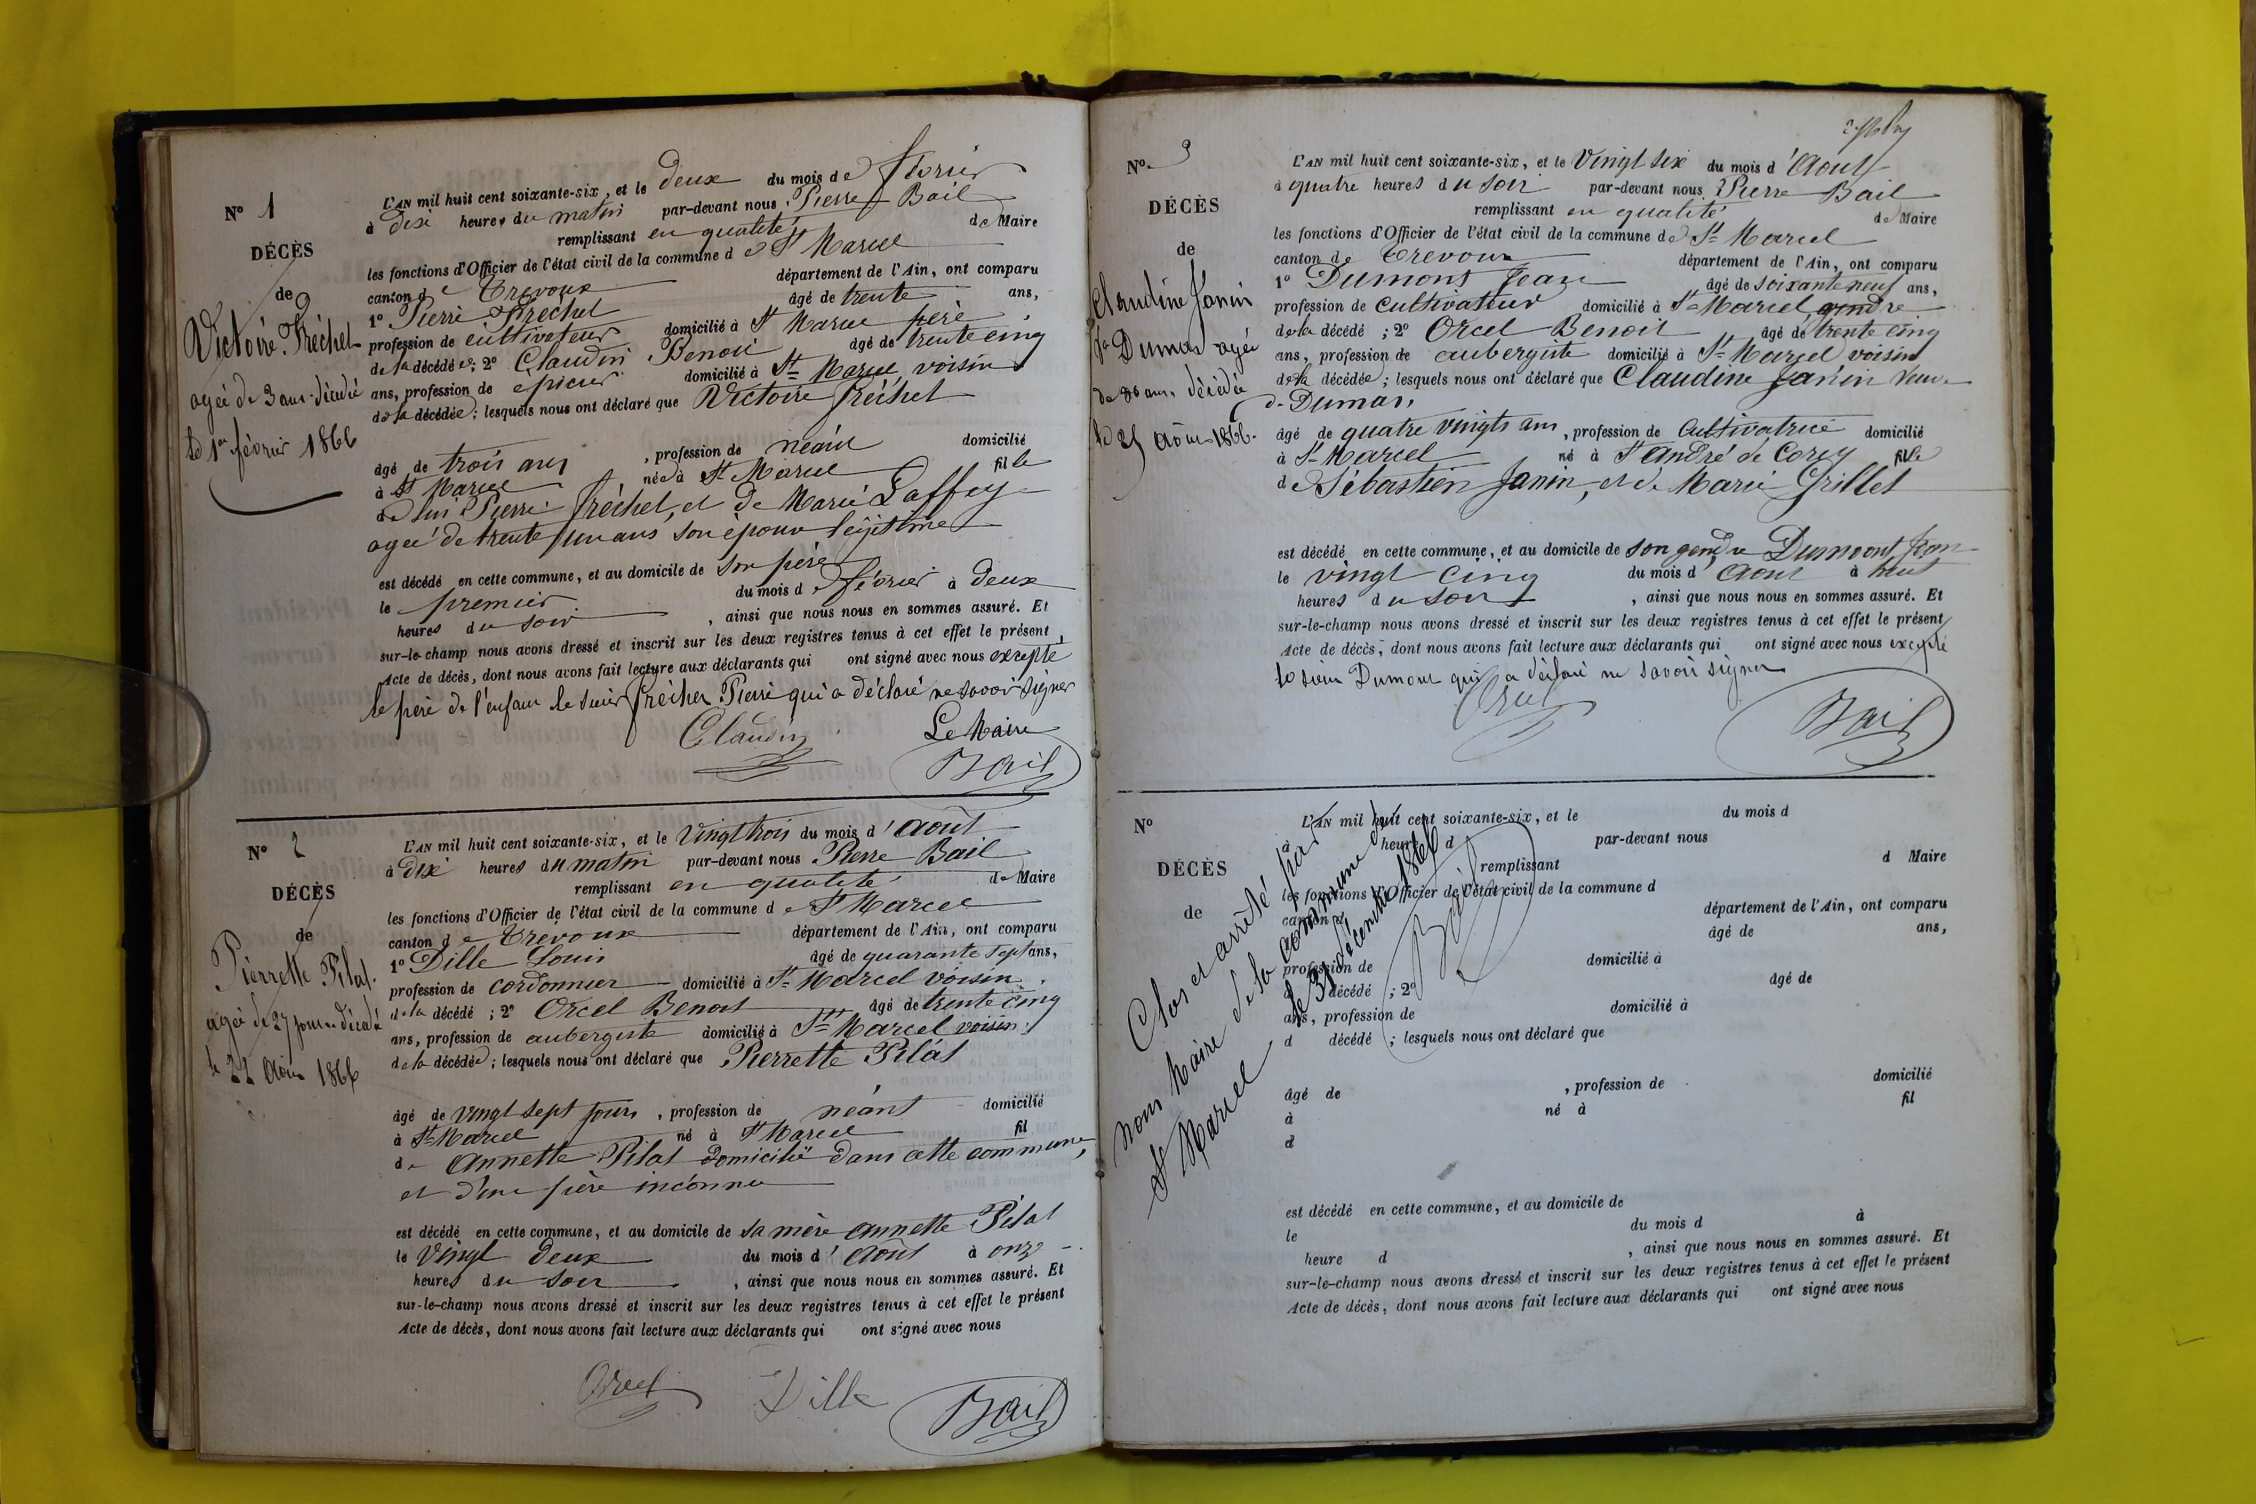 N° 1
DÉCÈS
de
Victoire Fréchet
agée de 3 ans décédée
le 1er février 1866
L'AN mil huit cent soixante-six, et le deux du mois de février
à dix heures du matin par-devant nous Pierre Bail
remplissant en qualité de Maire
les fonctions d'Officier de l'état civil de la commune de St Marcel
canton de Trevoux département de l'Ain, ont comparu
1° Pierre Fréchet âgé de trente ans,
profession de cultivateur domicilié à St Marcel père
de la décédée; 2° Claudin Benoit âgé de trente cinq
ans, profession de épicier domicilié à St Marcel voisin
de la décédée; lesquels nous ont déclaré que Victoire Fréchet
âgé de trois ans, profession de néant domicilié
à St Marcel née à St Marcel fille
de lui Pierre Fréchet, et de Marie Laffay
agée de trente un ans son épouse légitime
est décédé en cette commune, et au domicile de son père
le premier du mois de février à deux
heures du soir, ainsi que nous nous en sommes assuré. Et
sur-le-champ nous avons dressé et inscrit sur les deux registres tenus à cet effet le présent
Acte de décès, dont nous avons fait lecture aux déclarants qui ont signé avec nous excepté
le père de l'enfant le sieur Fréchet Pierre qui a déclaré ne savoir signer
Claudin Le Maire
Bail
N° 2
DÉCÈS
de
Pierrette Pilat
agée de 27 jours décédé
le 22 Août 1866
L'AN mil huit cent soixante-six, et le vingt trois du mois d'Aout
à dix heures du matin par-devant nous Pierre Bail
remplissant en qualité de Maire
les fonctions d'Officier de l'état civil de la commune de St Marcel
canton de Trevoux département de l'Ain, ont comparu
1° Dille Louis âgé de quarante sept ans,
profession de cordonnier domicilié à St Marcel voisin
de la décédé; 2° Orcel Benoit âgé de trente cinq
ans, profession de aubergiste domicilié à St Marcel voisin
de la décédée; lesquels nous ont déclaré que Pierrette Pilat
âgé de vingt sept jours, profession de néant domicilié
à St Marcel né à St Marcel fil
de Annette Pilat domicilié dans cette commune,
et d'un père inconnu
est décédé en cette commune, et au domicile de sa mère Annette Pilat
le vingt deux du mois d'Août à onze
heures du soir, ainsi que nous nous en sommes assuré. Et
sur-le-champ nous avons dressé et inscrit sur les deux registres tenus à cet effet le présent
Acte de décès, dont nous avons fait lecture aux déclarants qui ont signé avec nous
Orcel Dille Bail
N° 3
DÉCÈS
de
Claudine Janin
Dumas agée
de 80 ans, décédée
le 25 Août 1866.
L'AN mil huit cent soixante-six, et le vingt six du mois d'Aout
à quatre heures du soir par-devant nous Pierre Bail
remplissant en qualité de Maire
les fonctions d'Officier de l'état civil de la commune de St Marcel
canton de Trevoux département de l'Ain, ont comparu
1° Dumont Jean âgé de soixante neuf ans,
profession de cultivateur domicilié à St Marcel gendre
de la décédé; 2° Orcel Benoit âgé de trente cinq
ans, profession de aubergiste domicilié à St Marcel voisin
de la décédée; lesquels nous ont déclaré que Claudine Janin veuve
de Dumas,
âgé de quatre vingts ans, profession de Cultivatrice domicilié
à St Marcel né à St André de Corcy fille
de Sébastien Janin, et de Marie Grillet
est décédé en cette commune, et au domicile de son gendre Dumont Jean
le vingt cinq du mois d'Aout à huit
heures du soir, ainsi que nous nous en sommes assuré. Et
sur-le-champ nous avons dressé et inscrit sur les deux registres tenus à cet effet le présent
Acte de décès, dont nous avons fait lecture aux déclarants qui ont signé avec nous excepté
le sieur Dumont qui a déclaré ne savoir signer
Orcel Bail
N°
DÉCÈS
de
L'AN mil huit cent soixante-six, et le du mois d
à heure d par-devant nous
remplissant d Maire
les fonctions d'Officier de l'état civil de la commune d
canton d département de l'Ain, ont comparu
âgé de ans,
profession de domicilié à
d décédé; 2° âgé de
ans, profession de domicilié à
d décédé; lesquels nous ont déclaré que
âgé de, profession de domicilié
à né à fil
d
est décédé en cette commune, et au domicile de
le du mois d à
heure d, ainsi que nous nous en sommes assuré. Et
sur-le-champ nous avons dressé et inscrit sur les deux registres tenus à cet effet le présent
Acte de décès, dont nous avons fait lecture aux déclarants qui ont signé avec nous
Clos et arrêté par
nous Maire de la commune de
St Marcel le 31 décembre 1866
Bail